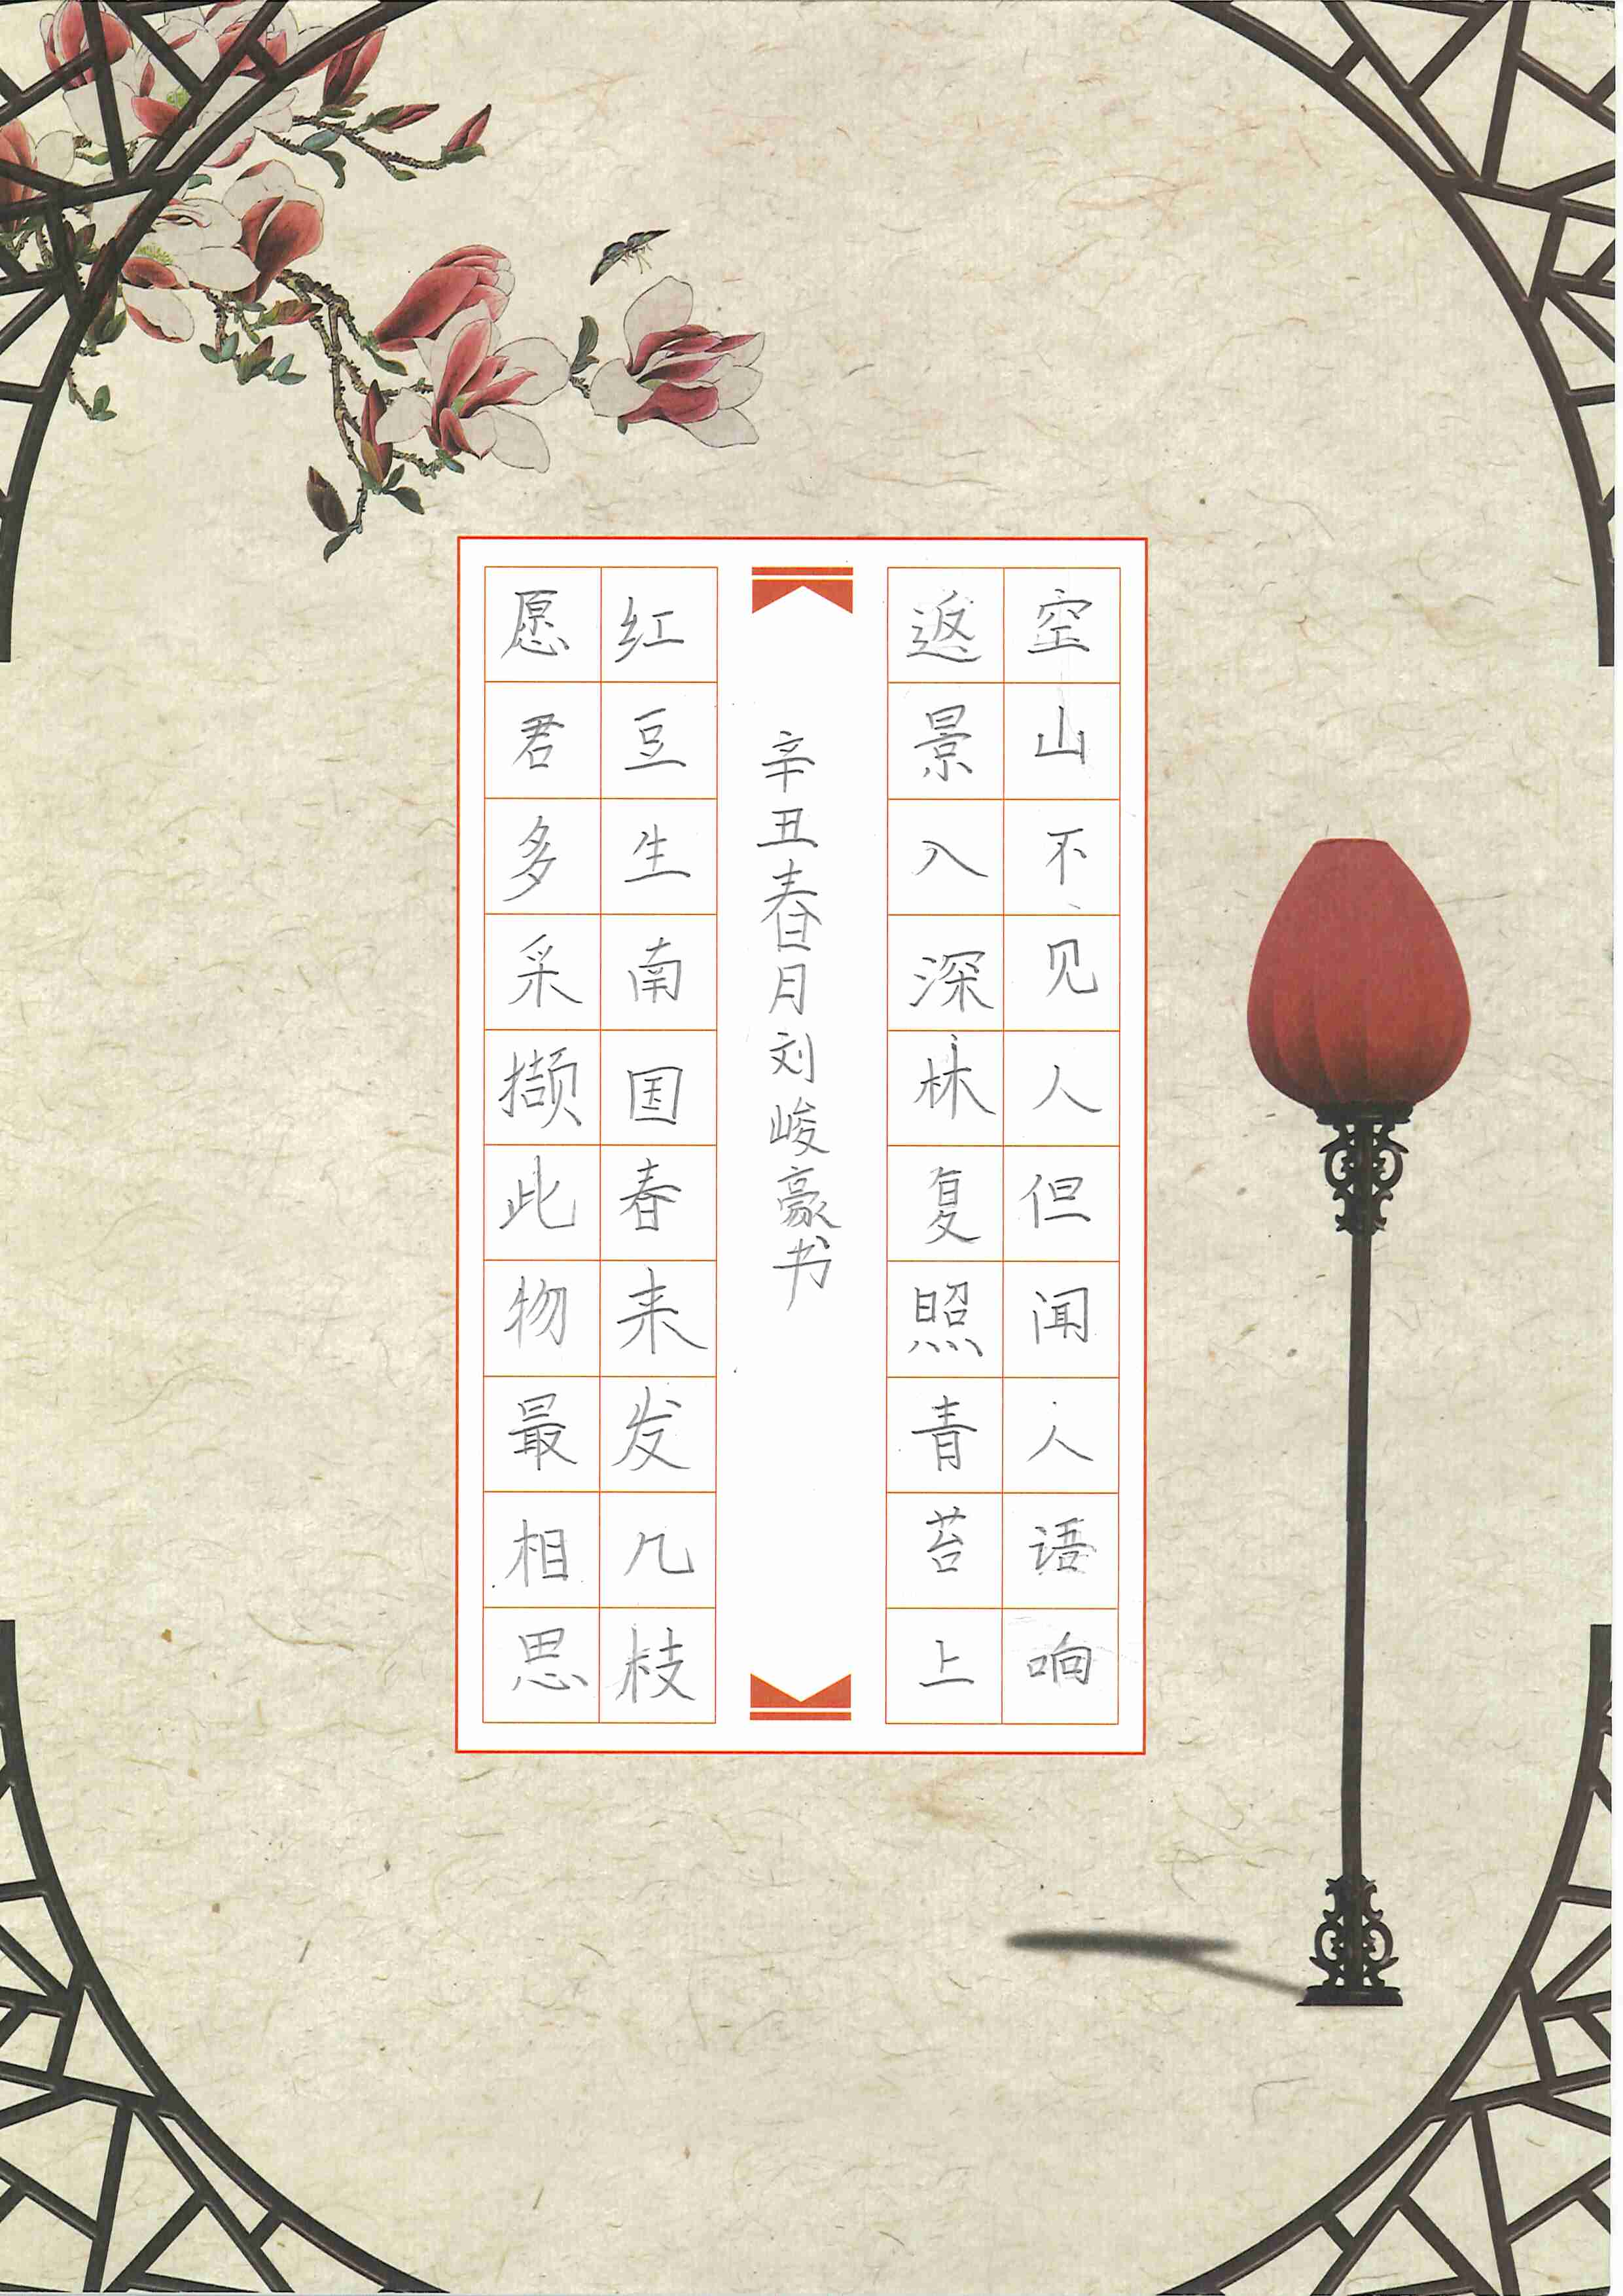 空山不见人但闻人语响
返景入深林复照青苔上
辛丑春月刘峻豪书
红豆生南国春来发几枝
愿君多采撷此物最相思